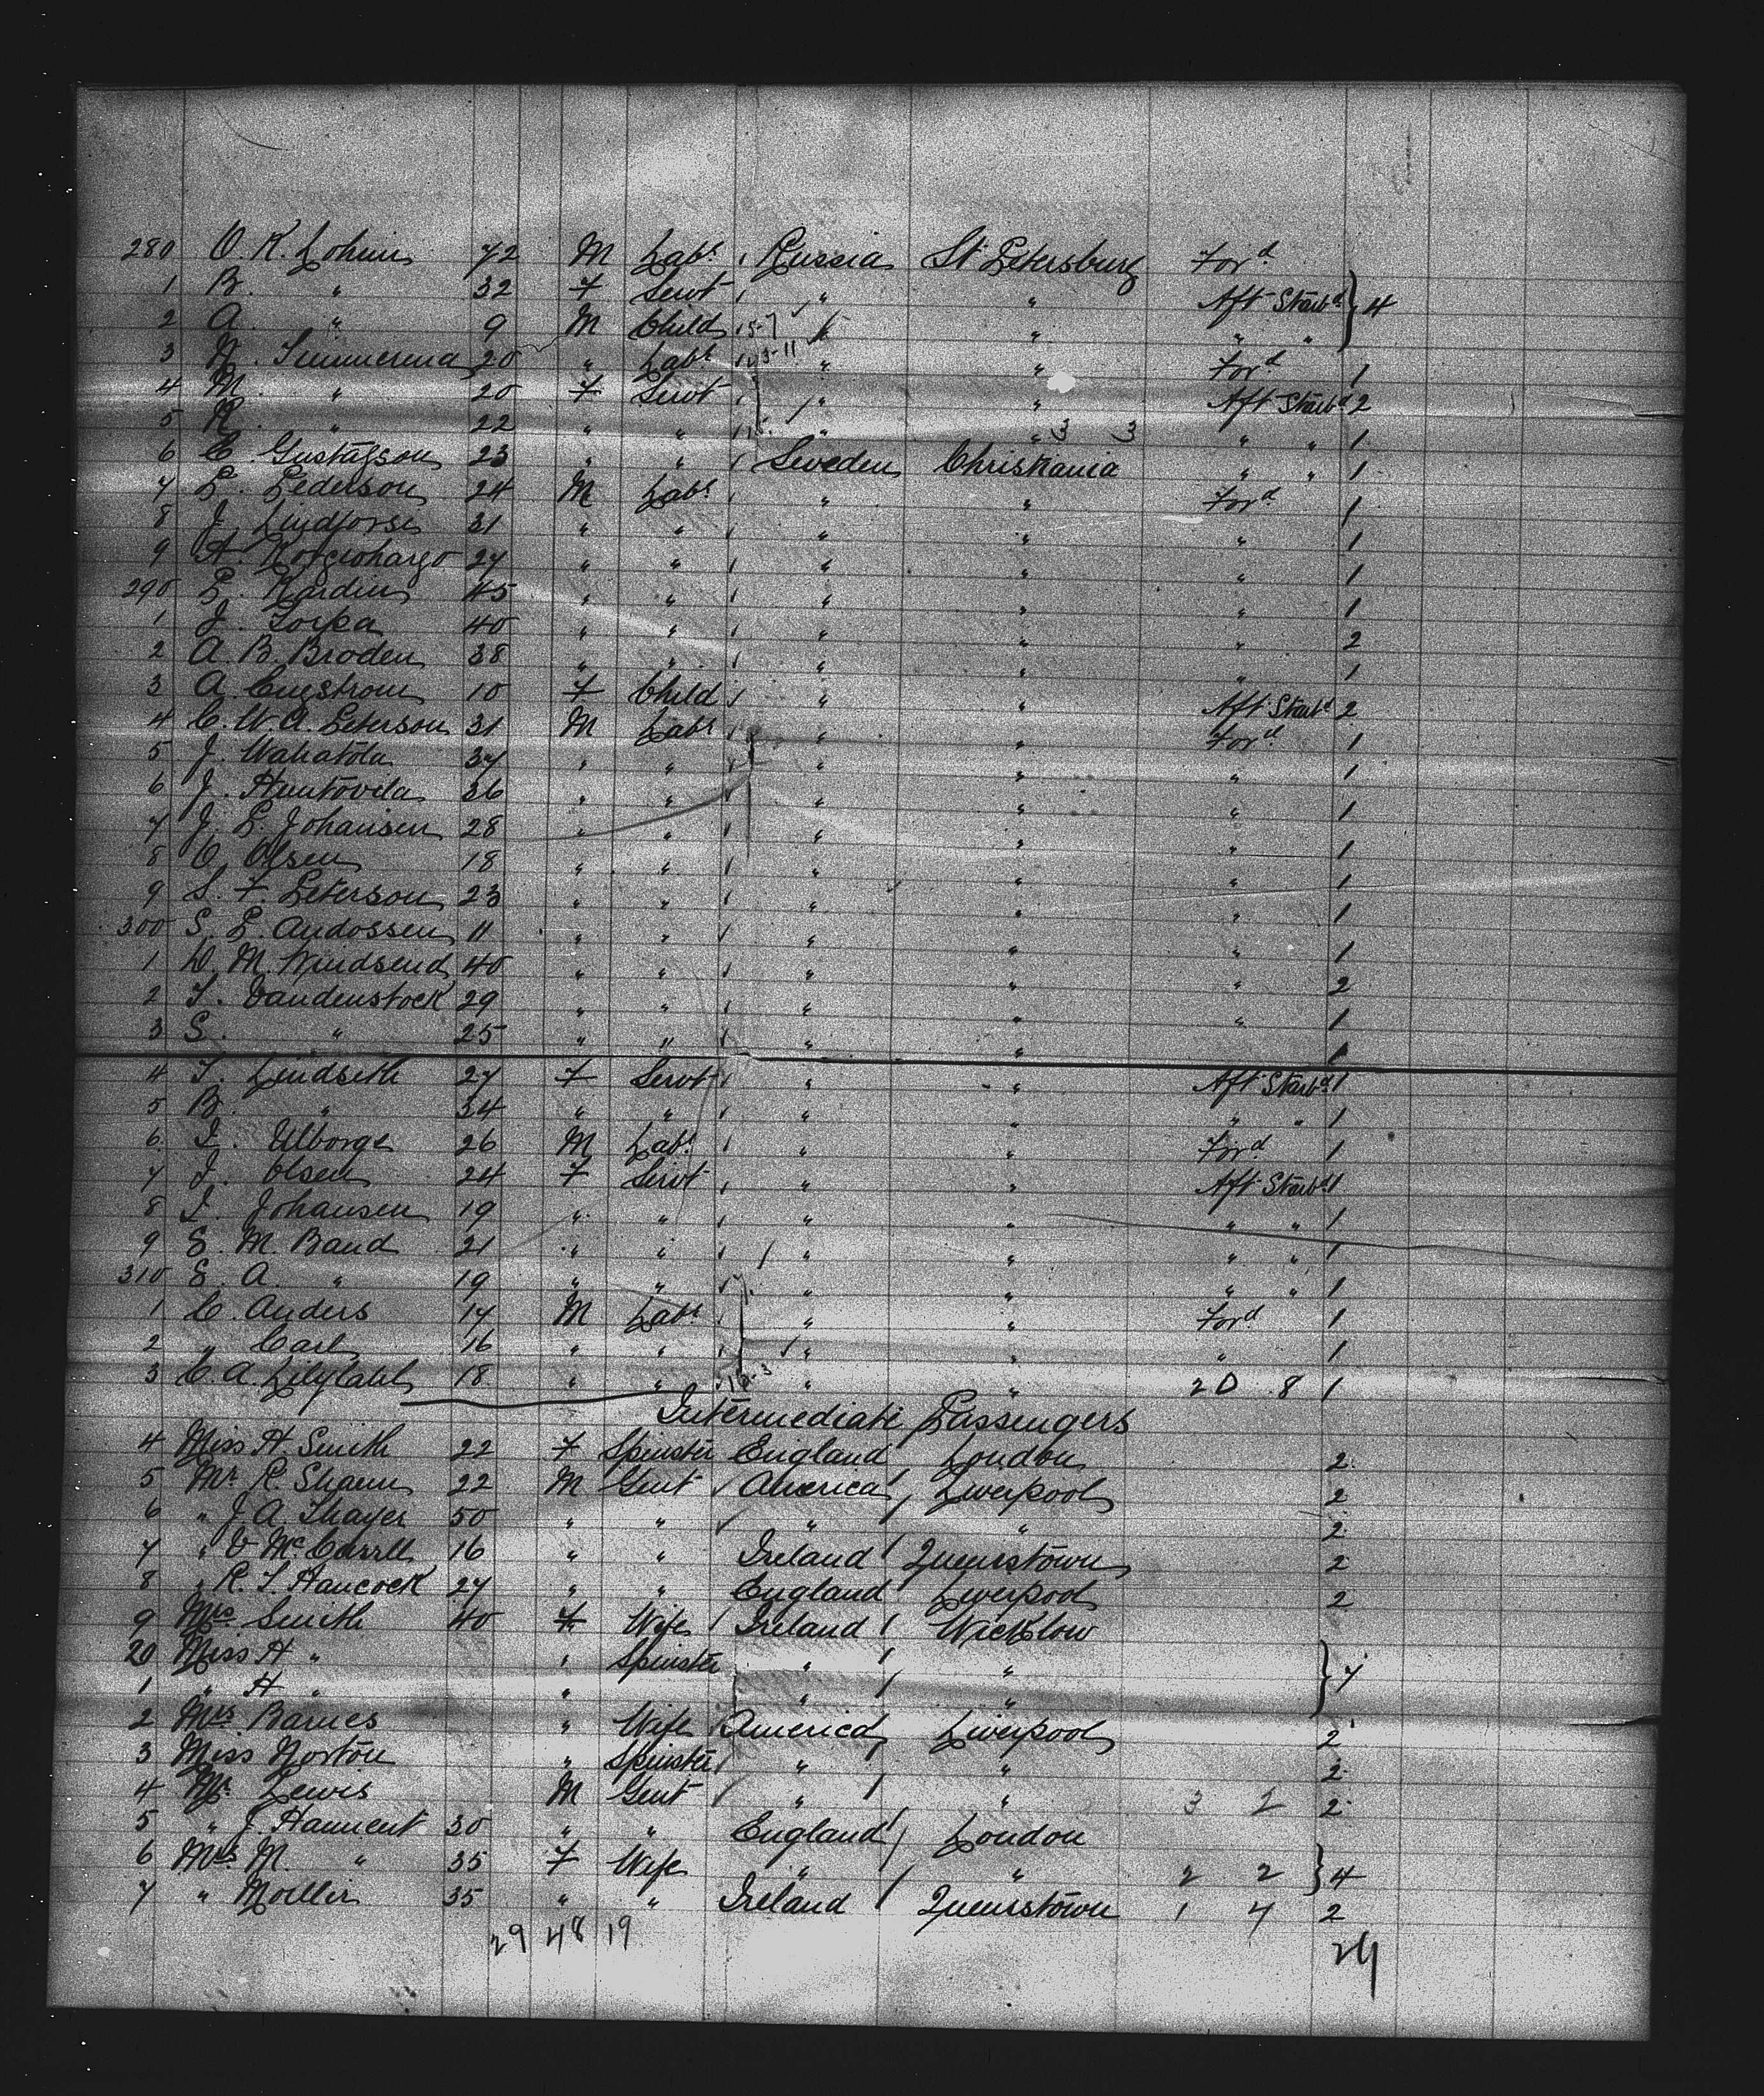 280 O. K. Lohin 72 M Labr Russia St Petersburg Ford
1 B. " 32 F Servt " " Aft Starbd } 4
2 A. " 9 M Child 5-7 " " " "
3 N. Simmerma 20 " Labr 15-11 " " Ford 1
4 M. " 20 F Servt " " Aft Starbd 2
5 K. " 22 " " " " 3 3 " " 1
6 C. Gustafson 23 " " Sweden Christiania " " 1
7 P. Pederson 24 M Labr " " Ford 1
8 J. Lindforse 31 " " " " " 1
9 A. 27 " " " " " 1
290 P. Kardin 45 " " " " " 1
1 J. Torpa 40 " " " " " 2
2 A. B. Broden 38 " " " " " 1
3 A. Engstrom 10 F Child " " Aft Starbd 2
4 C. W. A. Peterson 31 M Labr " " Ford 1
5 J. Wahatola 37 " " " " " 1
6 J. Huntovila 36 " " " " " 1
7 J. P. Johansen 28 " " " " " 1
8 O. Olsen 18 " " " " " 1
9 S. F. Peterson 23 " " " " " 1
300 S. P. Andossen 11 " " " " " 1
1 D. M. Windsend 40 " " " " " 2
2 T. Vandenstock 29 " " " " " 1
3 S. " 25 " " " " 1
4 T. Lindseth 27 F Servt " " Aft Starbd 1
5 B. " 34 " " " " " " 1
6 I. Ulborge 26 M Labr " " Ford 1
7 I. Olsen 24 F Servt " " Aft Starbd 1
8 I. Johansen 19 " " " " " " 1
9 E. M. Band 21 " " " " " " 1
310 E. A. " 19 " " " " " " 1
1 C. Anders 17 M Labr " " Ford 1
2 " Carl 16 " " " " " 1
3 C. A. Lilytahl 18 " " 16-3 " " 20 8 1
Intermediate Passengers
4 Miss H. Smith 22 F Spinster England London 2
5 Mr. R. Sharm 22 M Gent America Liverpool 2
6 " J. A. Thayer 50 " " " " 2
7 " D McCarrll 16 " " Ireland Queenstown 2
8 " R. T. Hancock 27 " " England Liverpool 2
9 Mrs Smith 40 F Wife Ireland Wicklow
20 Miss H " " Spinster " " } 7
1 " H " " " "
2 Mrs. Barnes " Wife America Liverpool 2
3 Miss Norton " Spinster " " 2
4 Mr. Lewis M Gent " " 3 2 2
5 " J. Hannent 30 " " England London
6 Mrs. M. " 35 F Wife " " 2 2 } 4
7 " Moller 35 " " Ireland Queenstown 1 7 2
29 48 19 24